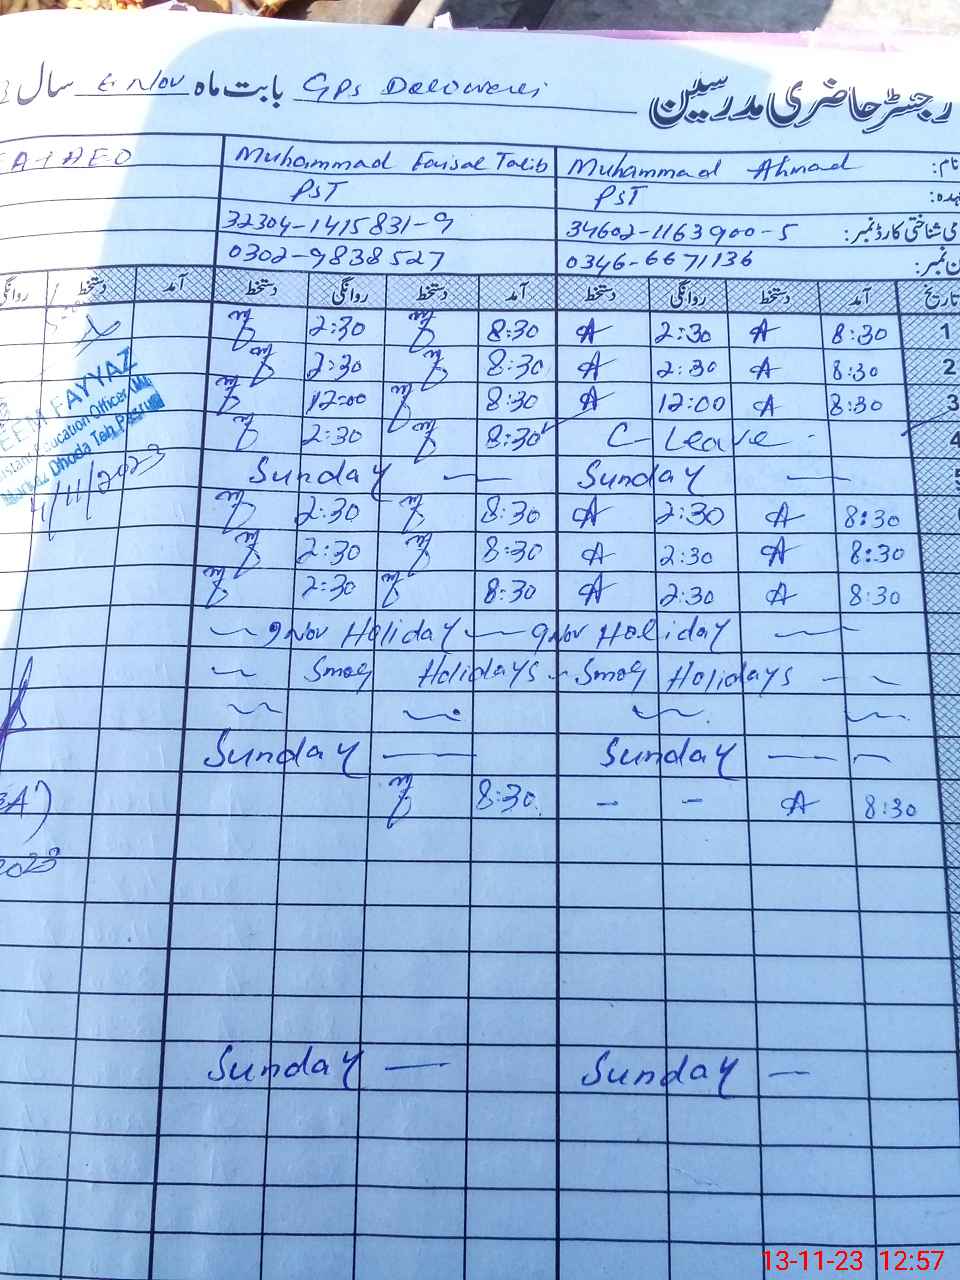 رجسٹر حاضری مدرسین بابت ماہ GPs سال Nov
نام: Muhammad Ahmad Muhammad Faisal Talib
PST PST
شناختی کارڈ نمبر: 34602-1163900-5 32304-1415831-9
0346-6671136 0302-9838527
تاریخ آمد دستخط روانگی دستخط آمد دستخط روانگی دستخط آمد دستخط
1 8:30 A 2:30 A 8:30 2:30
2 8:30 A 2:30 A 8:30 2:30
3 8:30 A 12:00 A 8:30 12:00
4 C- Leave - 8:30 2:30
5 Sunday — Sunday —
8:30 A 2:30 A 8:30 2:30
8:30 A 2:30 A 8:30 2:30
8:30 A 2:30 A 8:30 2:30
9 Nov Holiday — 9 Nov Holiday —
Smog Holidays - Smog Holidays - -
Sunday — Sunday —
8:30 A - - 8:30
Sunday — Sunday —
FAYYAZ
Education Officer
Dhoda Teh
4/11/2023
2023
13-11-23 12:57